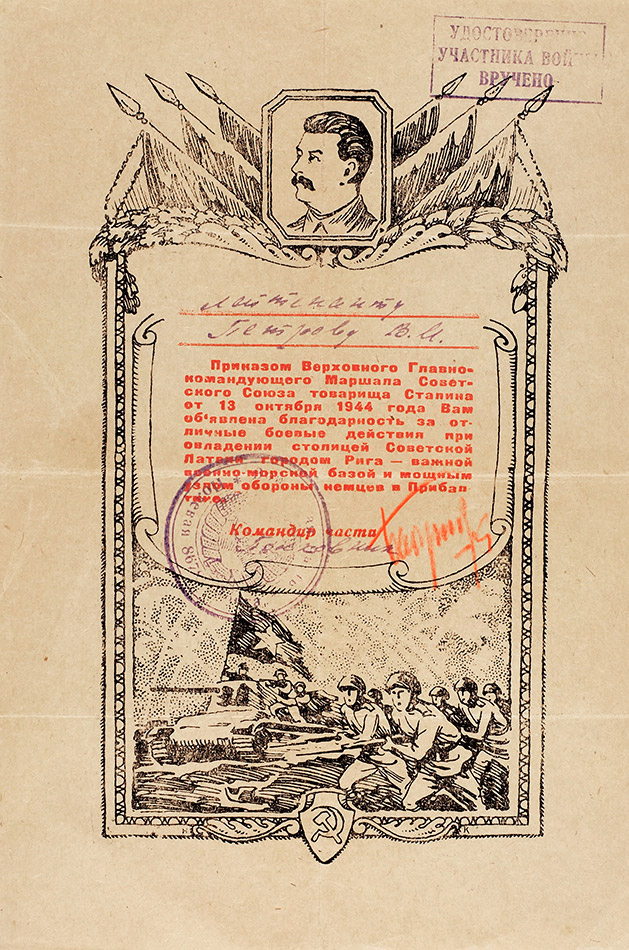 УДОСТОВЕРЕНИЕ
УЧАСТНИКА ВОЙНЫ
ВРУЧЕНО
лейтенанту
Петрову В.И.
Приказом Верховного Главно-
командующего Маршала Совет-
ского Союза товарища Сталина
от 13 октября 1944 года Вам
об'явлена благодарность за от-
личные боевые действия при
овладении столицей Советской
Латвии городом Рига — важной
военно-морской базой и мощным
узлом обороны немцев в Прибал
тике.
Командир части
Полковник
полевая